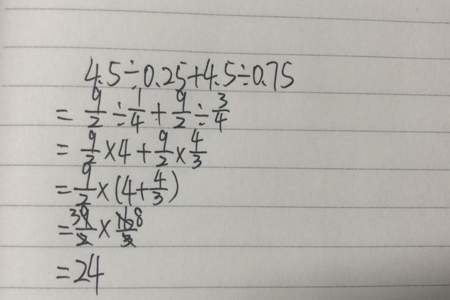 4.5÷0.25+4.5÷0.75
= 9/2 ÷ 1/4 + 9/2 ÷ 3/4
= 9/2 × 4 + 9/2 × 4/3
= 9/2 × (4 + 4/3)
= 3 9/2 × 16 8/3
= 24